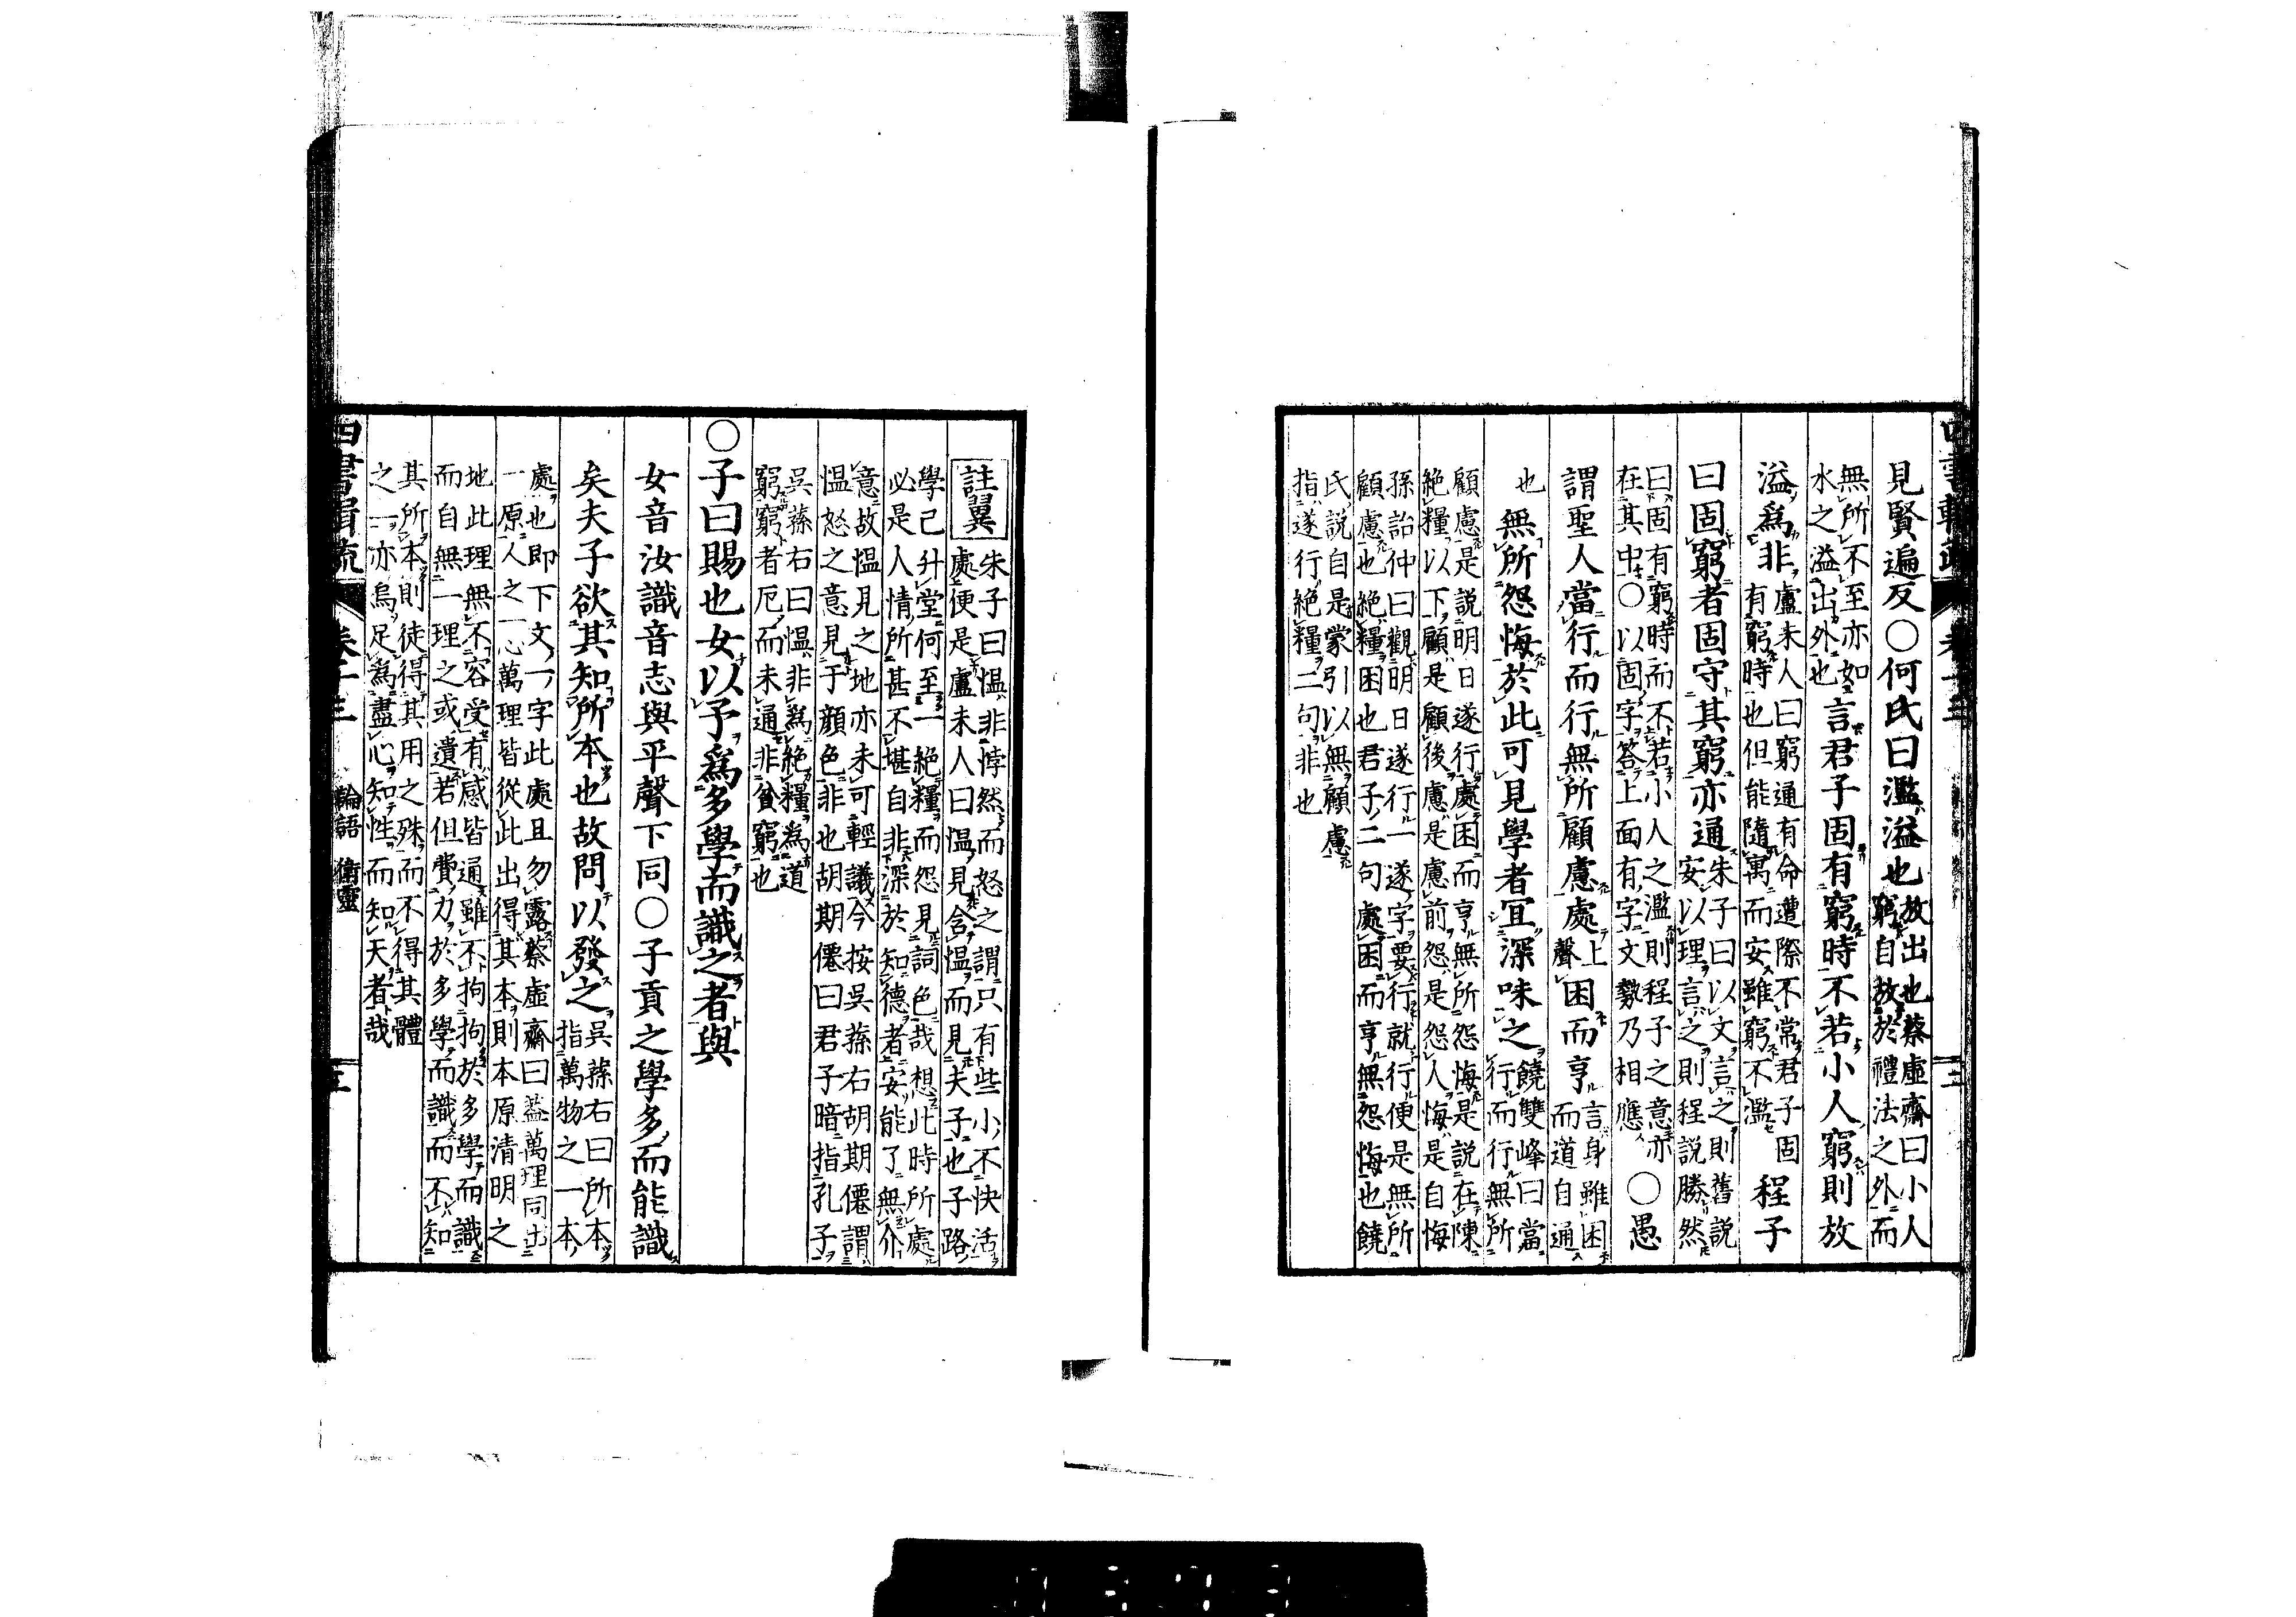 見賢遍反○何氏曰濫溢也放出也蔡虛齋曰小人
窮自放於禮法之外而
無所不至亦如
水之溢出外也言君子固有窮時不若小人窮則放
溢爲非盧未人曰窮通有命遭際不常君子固
有窮時也但能隨寓而安雖窮不濫程子
曰固窮者固守其窮亦通朱子曰以文言之則舊説
安以理言之則程説勝然
曰固有窮時而不若小人之濫則程子之意亦
在其中○以固字答上面有字文勢乃相應○愚
謂聖人當行而行無所顧慮處上聲困而亨言身雖困
而道自通
也無所怨悔於此可見學者宜深味之饒雙峰曰當
行而行無所
顧慮是説明日遂行處困而亨無所怨悔是説在陳
絶糧以下顧是顧後慮是慮前怨是怨人悔是自悔
孫詒仲曰觀明日遂行一遂字要行就行便是無所
顧慮也絶糧困也君子二句處困而亨無怨悔也饒
氏説自是蒙引以無顧慮
指遂行絶糧二句非也
註翼朱子曰慍非悖然而怒之謂只有些小不快活
處便是盧未人曰慍見含慍而見夫子也子路
學已升堂何至一絶糧而怨見詞色哉想此時所處
必是人情所甚不堪自非深於知德者安能了無介
意故慍見之地亦未可輕議今按吳蓀右胡期僊謂
慍怒之意見于顔色非也胡期僊曰君子暗指孔子
吳蓀右曰慍非爲絶糧爲道
窮窮者厄而未通非貧窮也
○子曰賜也女以予爲多學而識之者與
女音汝識音志與平聲下同○子貢之學多而能識
矣夫子欲其知所本也故問以發之吳蓀右曰所本
指萬物之一本
處也即下文一字此處且勿露蔡虛齋曰蓋萬理同出
一原人之一心萬理皆從此出得其本則本原清明之
地此理無不容受有感皆通雖不拘拘於多學而識
而自無一理之或遺若但費力於多學而識而不知
其所本則徒得其用之殊而不得其體
之一亦烏足爲盡心知性而知天者哉
四書輯疏
卷十三
論語 衞靈
三